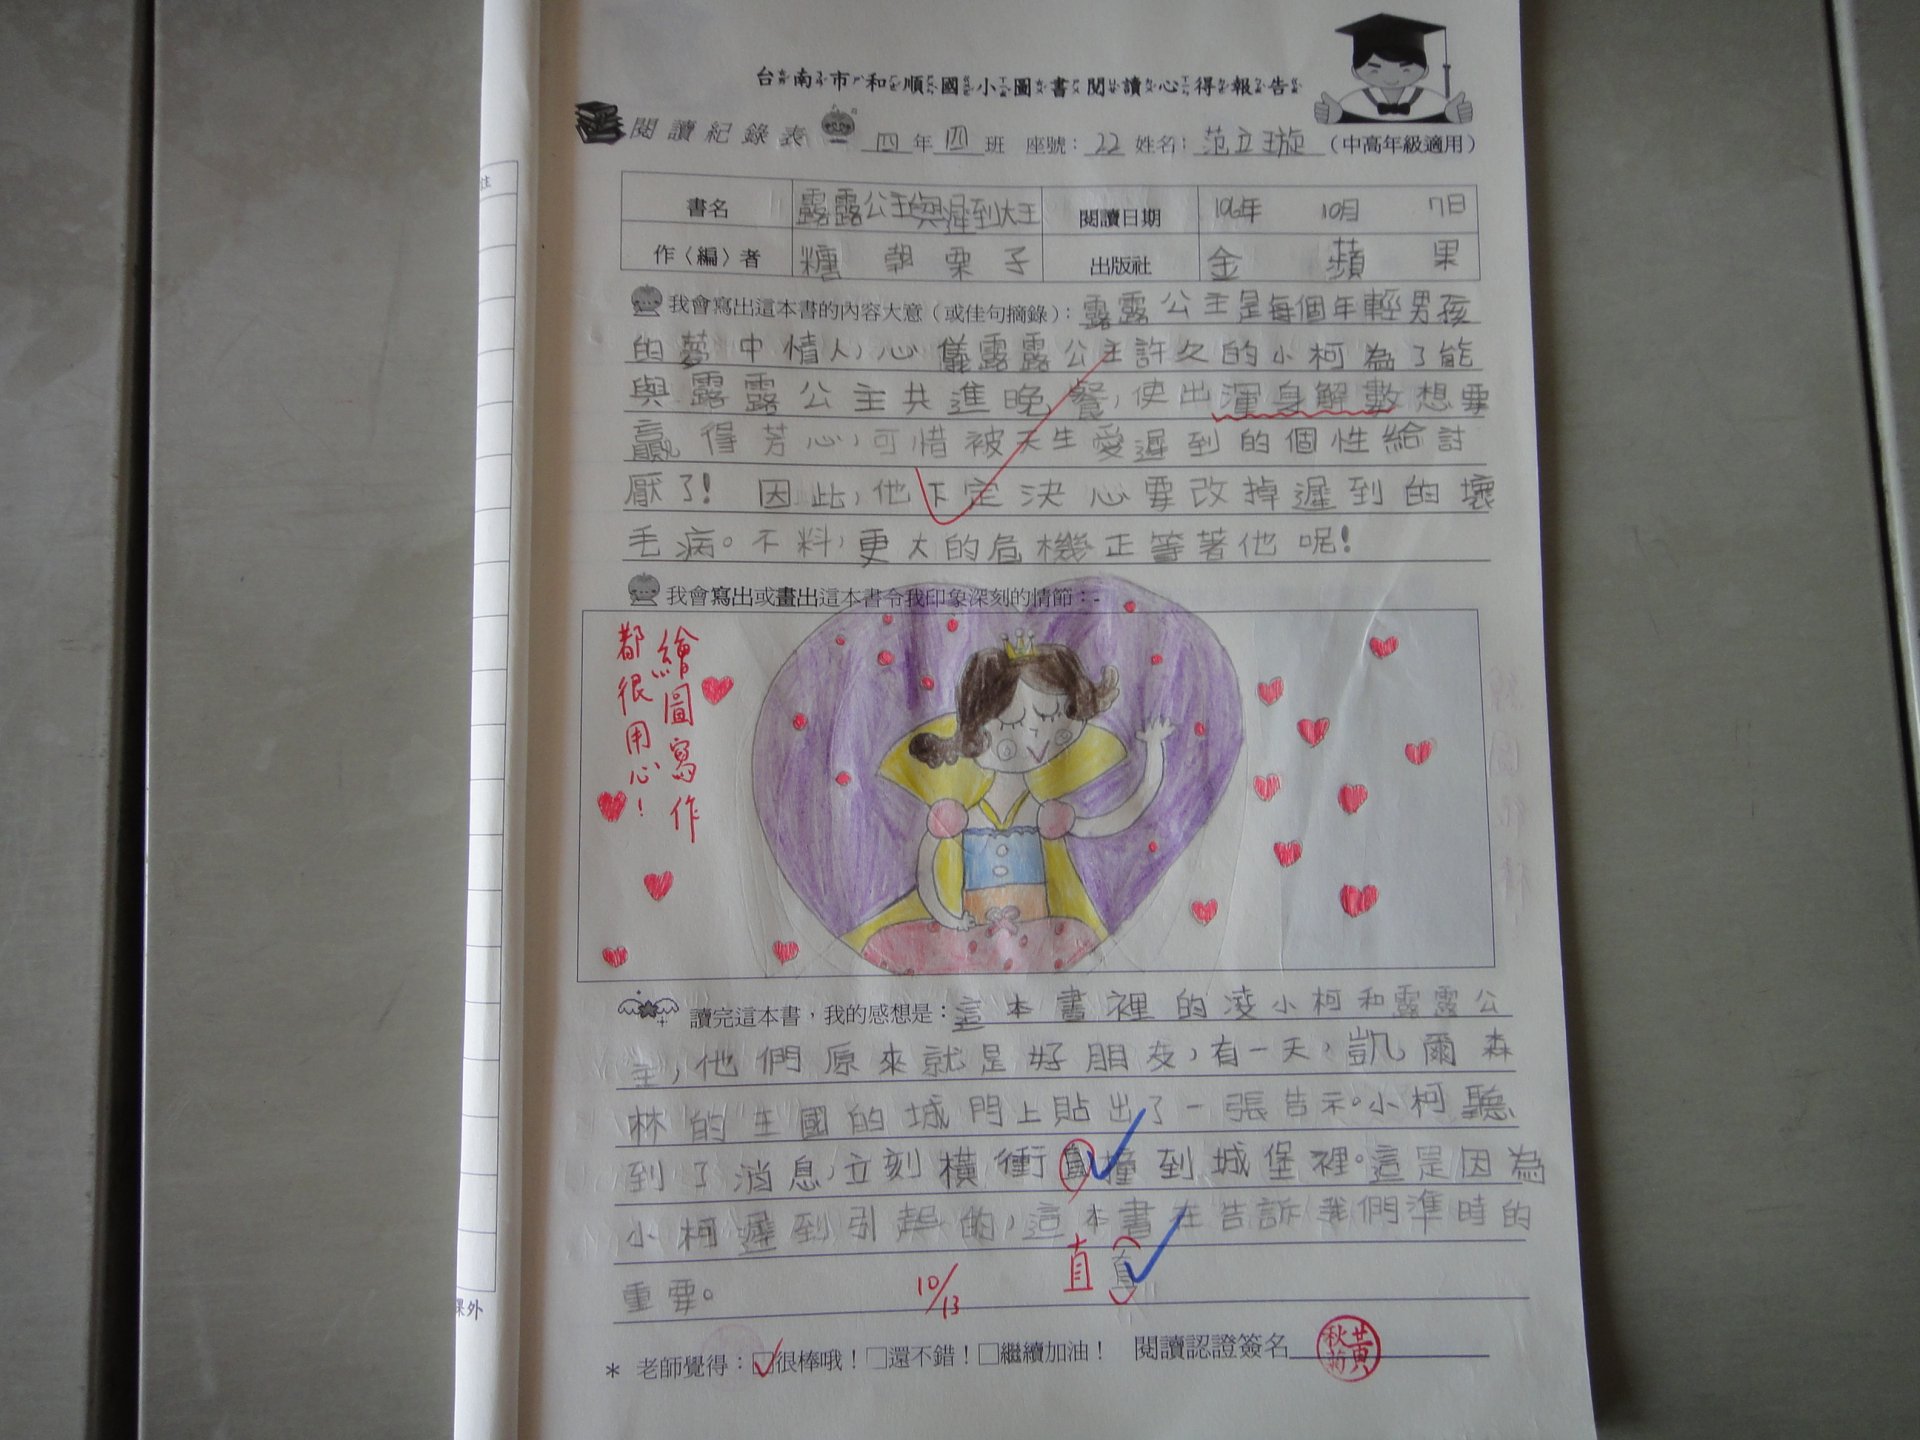 台南市和順國小圖書閱讀心得報告
閱讀紀錄表 四年四班 座號:22 姓名:范立璇 (中高年級適用)
書名 露露公主與遲到大王 閱讀日期 106年 10月 7日
作〈編〉者 糖朝栗子 出版社 金蘋果
我會寫出這本書的內容大意(或佳句摘錄):露露公主是每個年輕男孩
的夢中情人,心儀露露公主許久的小柯為了能
與露露公主共進晚餐,使出渾身解數想要
贏得芳心,可惜被天生愛遲到的個性給討
厭了!因此,他下定決心要改掉遲到的壞
毛病。不料,更大的危機正等著他呢!
我會寫出或畫出這本書令我印象深刻的情節:-
繪圖寫作
都很用心!
讀完這本書,我的感想是:這本書裡的凌小柯和露露公
主,他們原來就是好朋友,有一天,凱爾森
林的王國的城門上貼出了一張告示。小柯聽
到了消息,立刻橫衝直撞到城堡裡。這是因為
小柯遲到引起的,這本書在告訴我們準時的
重要。 10/13 直(直)
* 老師覺得:☑很棒哦!□還不錯!□繼續加油! 閱讀認證簽名 黃秋菊
課外